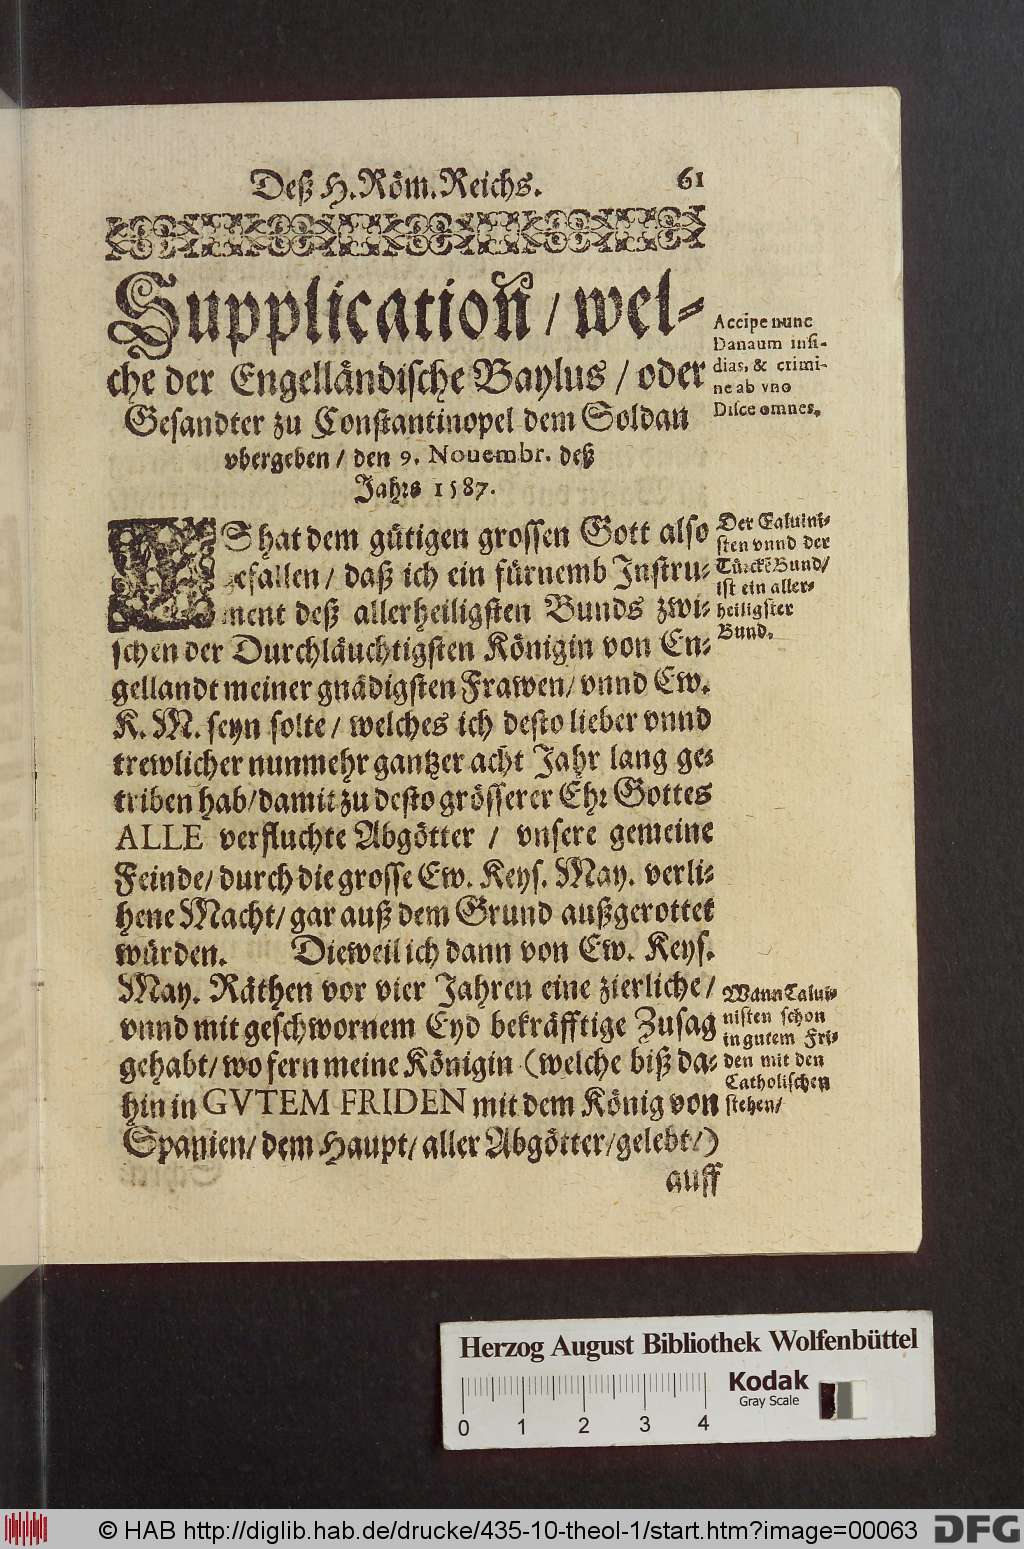 Deß H. Röm. Reichs. 61
Supplication / wel-
che der Engelländische Baylus / oder
Gesandter zu Constantinopel dem Soldan
vbergeben / den 9. Nouembr. deß
Jahrs 1587.
Accipe nunc
Danaum insi-
dias, & crimi-
ne ab vno
Disce omnes.
ES hat dem gütigen grossen Gott also
gefallen / daß ich ein fürnemb Instru-
ment deß allerheiligsten Bunds zwi-
schen der Durchläuchtigsten Königin von En-
gellandt meiner gnädigsten Frawen / vnnd Ew.
K. M. seyn solte / welches ich desto lieber vnnd
trewlicher nunmehr gantzer acht Jahr lang ge-
triben hab / damit zu desto grösserer Ehr Gottes
ALLE verfluchte Abgötter / vnsere gemeine
Feinde / durch die grosse Ew. Keys. May. verli-
hene Macht / gar auß dem Grund außgerottet
würden. Dieweil ich dann von Ew. Keys.
May. Räthen vor vier Jahren eine zierliche /
vnnd mit geschwornem Eyd bekräfftige Zusag
gehabt / wo fern meine Königin (welche biß da-
hin in GVTEM FRIDEN mit dem König von
Spanien / dem Haupt / aller Abgötter / gelebt /)
auff
Der Caluini-
sten vnnd der
Türckē Bund /
ist ein aller-
heiligster
Bund.
Wann Calui-
nisten schon
in gutem Fri-
den mit den
Catholischen
stehen /
Herzog August Bibliothek Wolfenbüttel
Kodak
Gray Scale
0 1 2 3 4
© HAB http://diglib.hab.de/drucke/435-10-theol-1/start.htm?image=00063
DFG